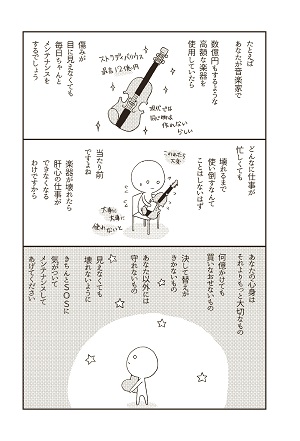 たとえば
あなたが音楽家で
数億円もするような
高額な楽器を
使用していたら
ストラディバリウス
最高12億円
現代では
同じ物は
作れない
らしい
傷みが
目に見えなくても
毎日ちゃんと
メンテナンスを
するでしょう
どんなに仕事が
忙しくても
壊れるまで
使い倒すなんて
ことはしないはず
こわれたら
大変
大事に
大事に
使わないと
当たり前
ですよね
楽器が壊れたら
肝心の仕事が
できなくなる
わけですから
あなたの心身は
それよりもっと大切なもの
何億かけても
買いなおせないもの
決して替えが
きかないもの
あなた以外には
守れないもの
見えなくても
壊れないように
きちんとSOSに
気がついて
メンテナンスして
あげてください